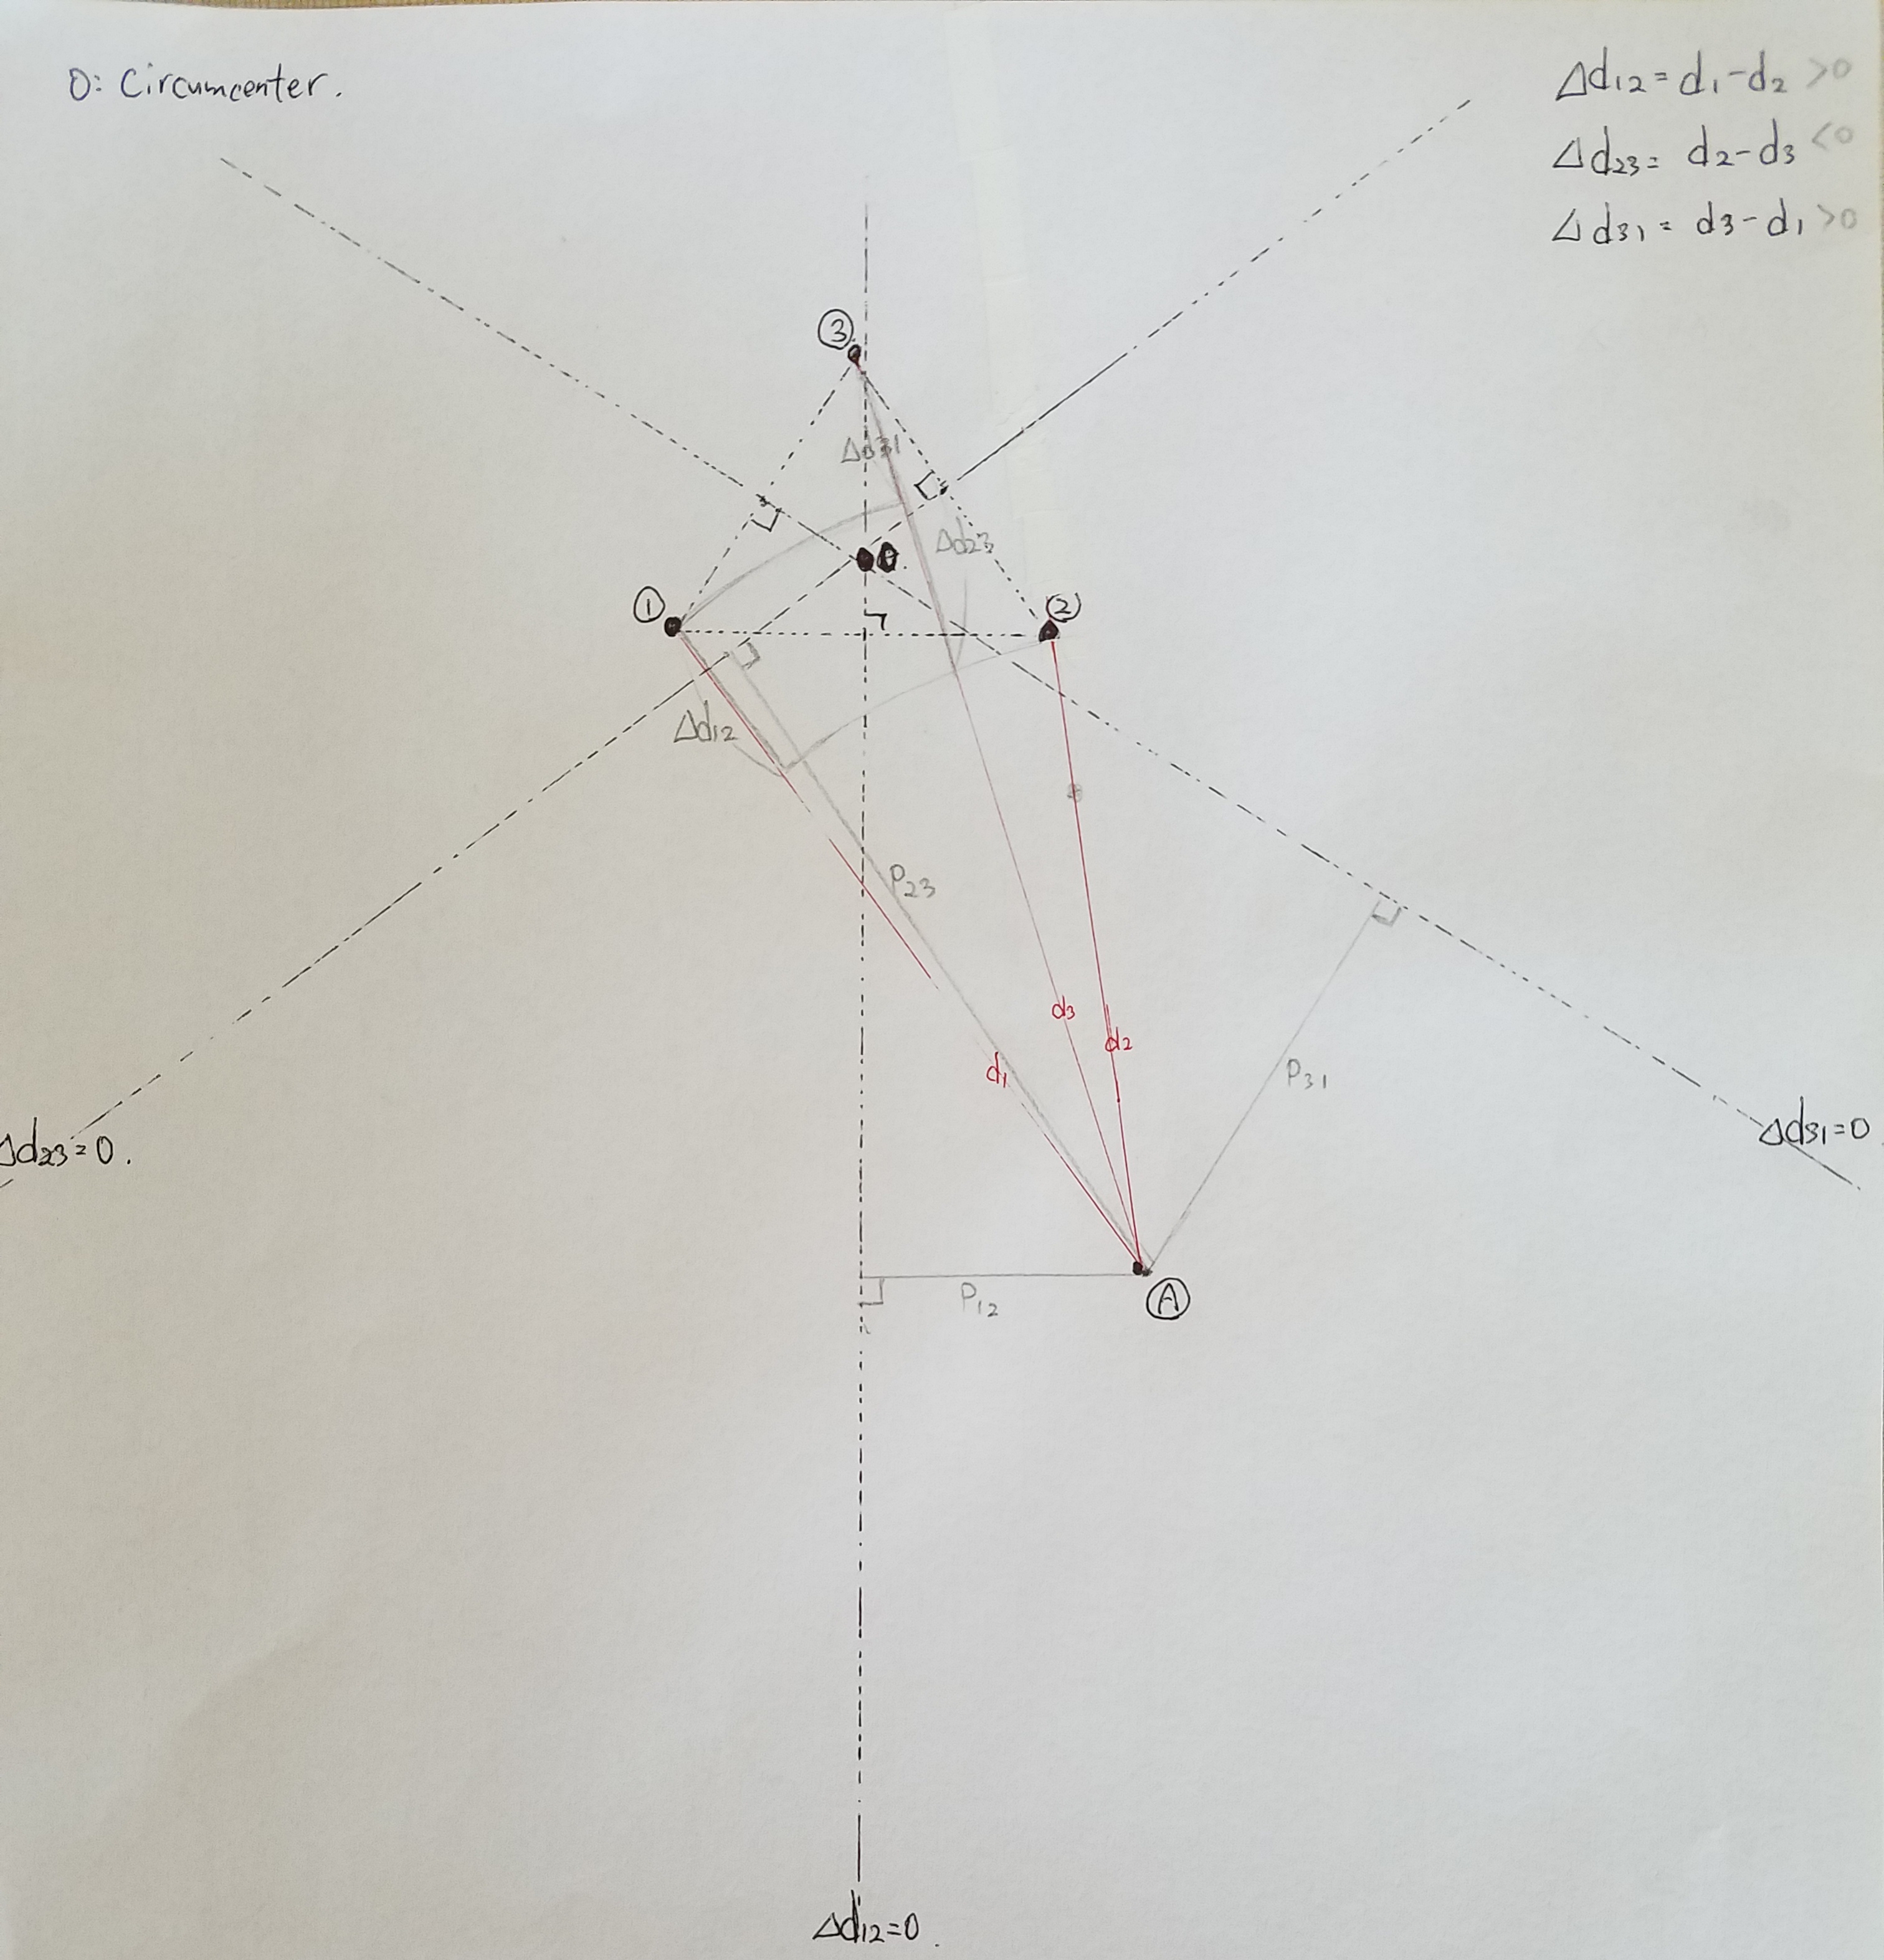 O: Circumcenter.
Δd12 = d1-d2 >0
Δd23 = d2-d3 <0
Δd31 = d3-d1 >0
③
Δd31
Δd23
O.
①
②
Δd12
P23
d3
d2
d1
P31
Δd23=0.
Δd31=0
P12
Ⓐ
Δd12=0.